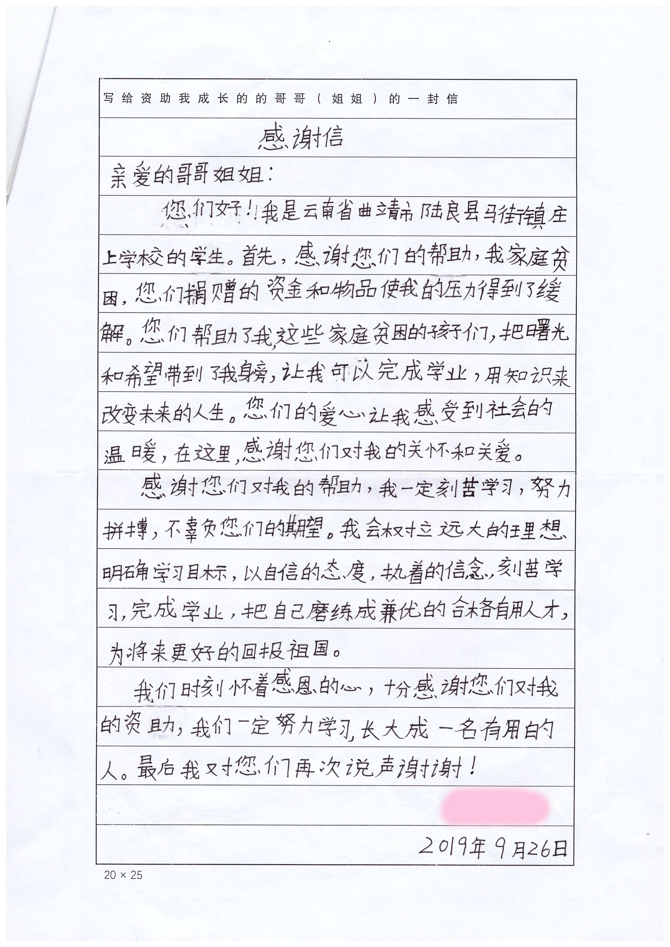 写给资助我成长的的哥哥(姐姐)的一封信
感谢信
亲爱的哥哥姐姐:
您们好!我是云南省曲靖市陆良县马街镇庄
上学校的学生。首先,感谢您们的帮助,我家庭贫
困,您们捐赠的资金和物品使我的压力得到了缓
解。您们帮助了我,这些家庭贫困的孩子们,把曙光
和希望带到了我身旁,让我可以完成学业,用知识来
改变未来的人生。您们的爱心让我感受到社会的
温暖,在这里,感谢您们对我的关怀和关爱。
感谢您们对我的帮助,我一定刻苦学习,努力
拼搏,不辜负您们的期望。我会树立远大的理想
明确学习目标,以自信的态度,执着的信念,刻苦学
习,完成学业,把自己磨练成兼优的合格有用人才,
为将来更好的回报祖国。
我们时刻怀着感恩的心,十分感谢您们对我
的资助,我们一定努力学习,长大成一名有用的
人。最后我又对您们再次说声谢谢!
2019年9月26日
20×25